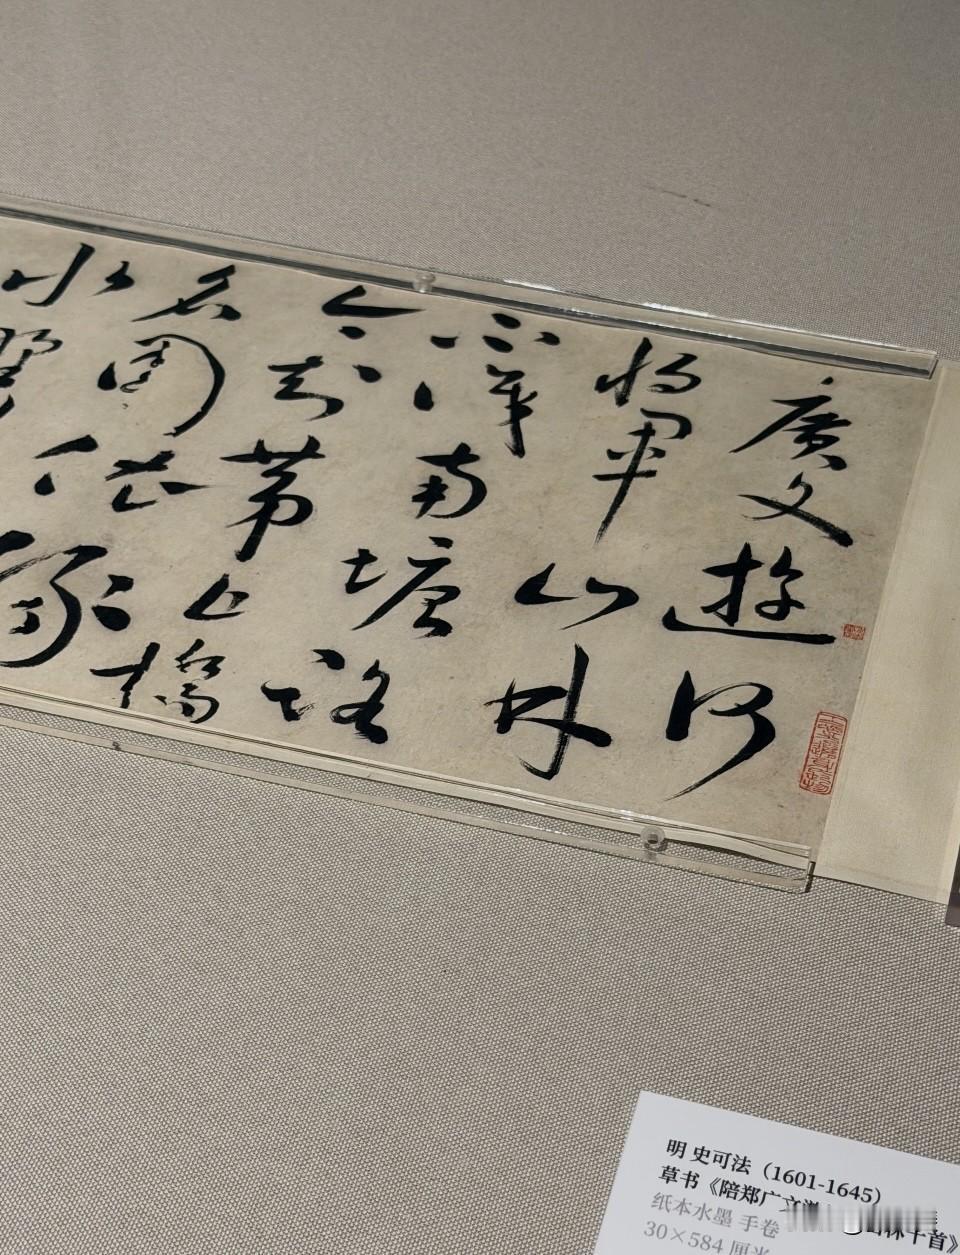 廣文遊何
将軍山林
不識南塘路
今知第五橋
名園依綠
水野竹
明 史可法（1601-1645）
草书《陪郑广文游山林十首》
纸本水墨 手卷
30×584 厘米